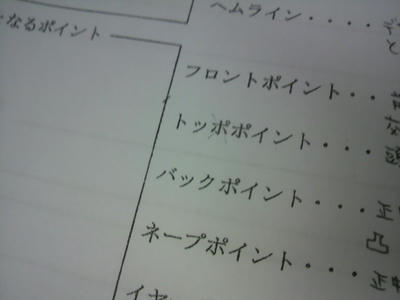 ヘムライン・・・・
なるポイント
フロントポイント・・
トッポポイント・・・
バックポイント・・・
ネープポイント・・・
凸
イヤ